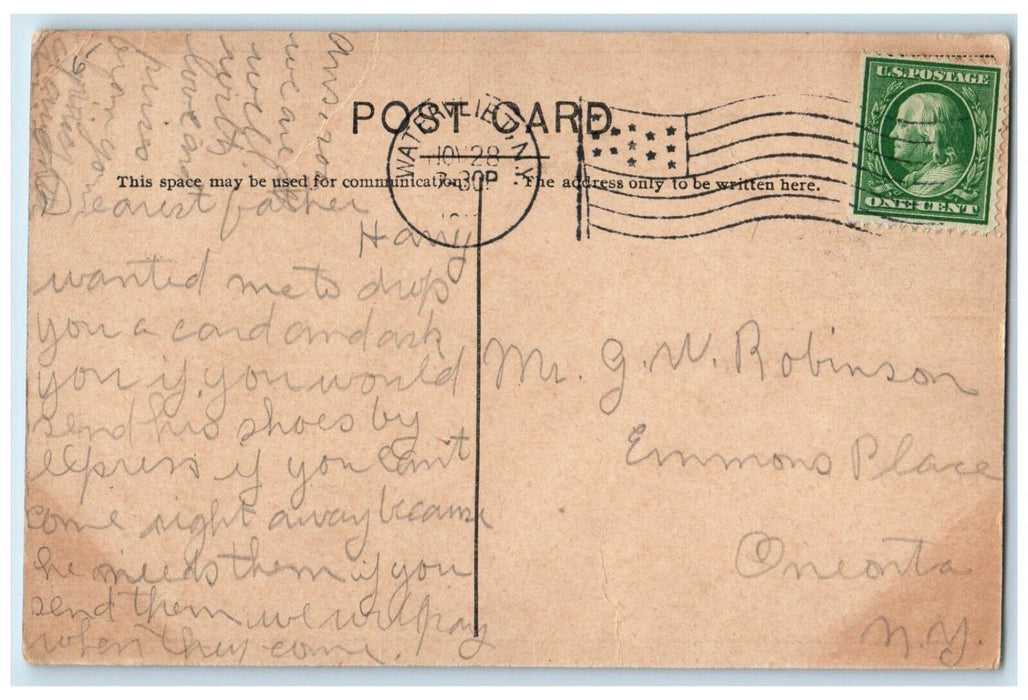 POST CARD
WATERVLIET N.Y.
NOV 28
3-30P
U.S. POSTAGE
ONE CENT
This space may be used for communication.
The address only to be written here.
Dearest father
Harry
wanted me to drop
you a card and ask
you if you would
send his shoes by
express if you can't
come right away because
he needs them if you
send them we will pay
when they come.
Ans. soon
we are
well
with
love and
from
Mr. G. W. Robinson
Emmons Place
Oneonta
N.Y.